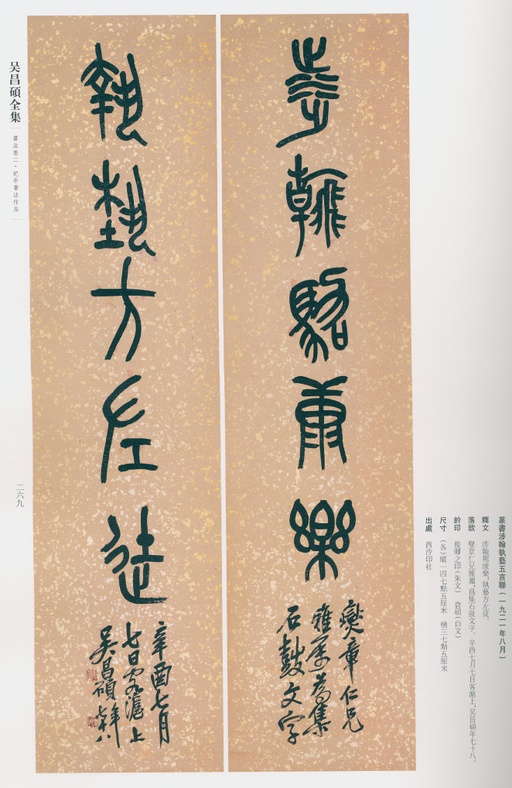 涉翰駕康樂
燮章仁兄
雅屬為集
石鼓文字
執藝方左徒
辛酉七月
七日客滬上
吳昌碩年七十八
吴昌碩全集
書法卷二·紀年書法作品
二六九
篆書涉翰執藝五言聯（一九二一年八月）
釋文 涉翰駕康樂，執藝方左徒。
落款 燮章仁兄雅屬，爲集石鼓文字。辛酉七月七日客滬上，吳昌碩年七十八。
鈐印 俊卿之印（朱文） 倉碩（白文）
尺寸 （各）縱一四七點五厘米 橫三七點五厘米
出處 西泠印社